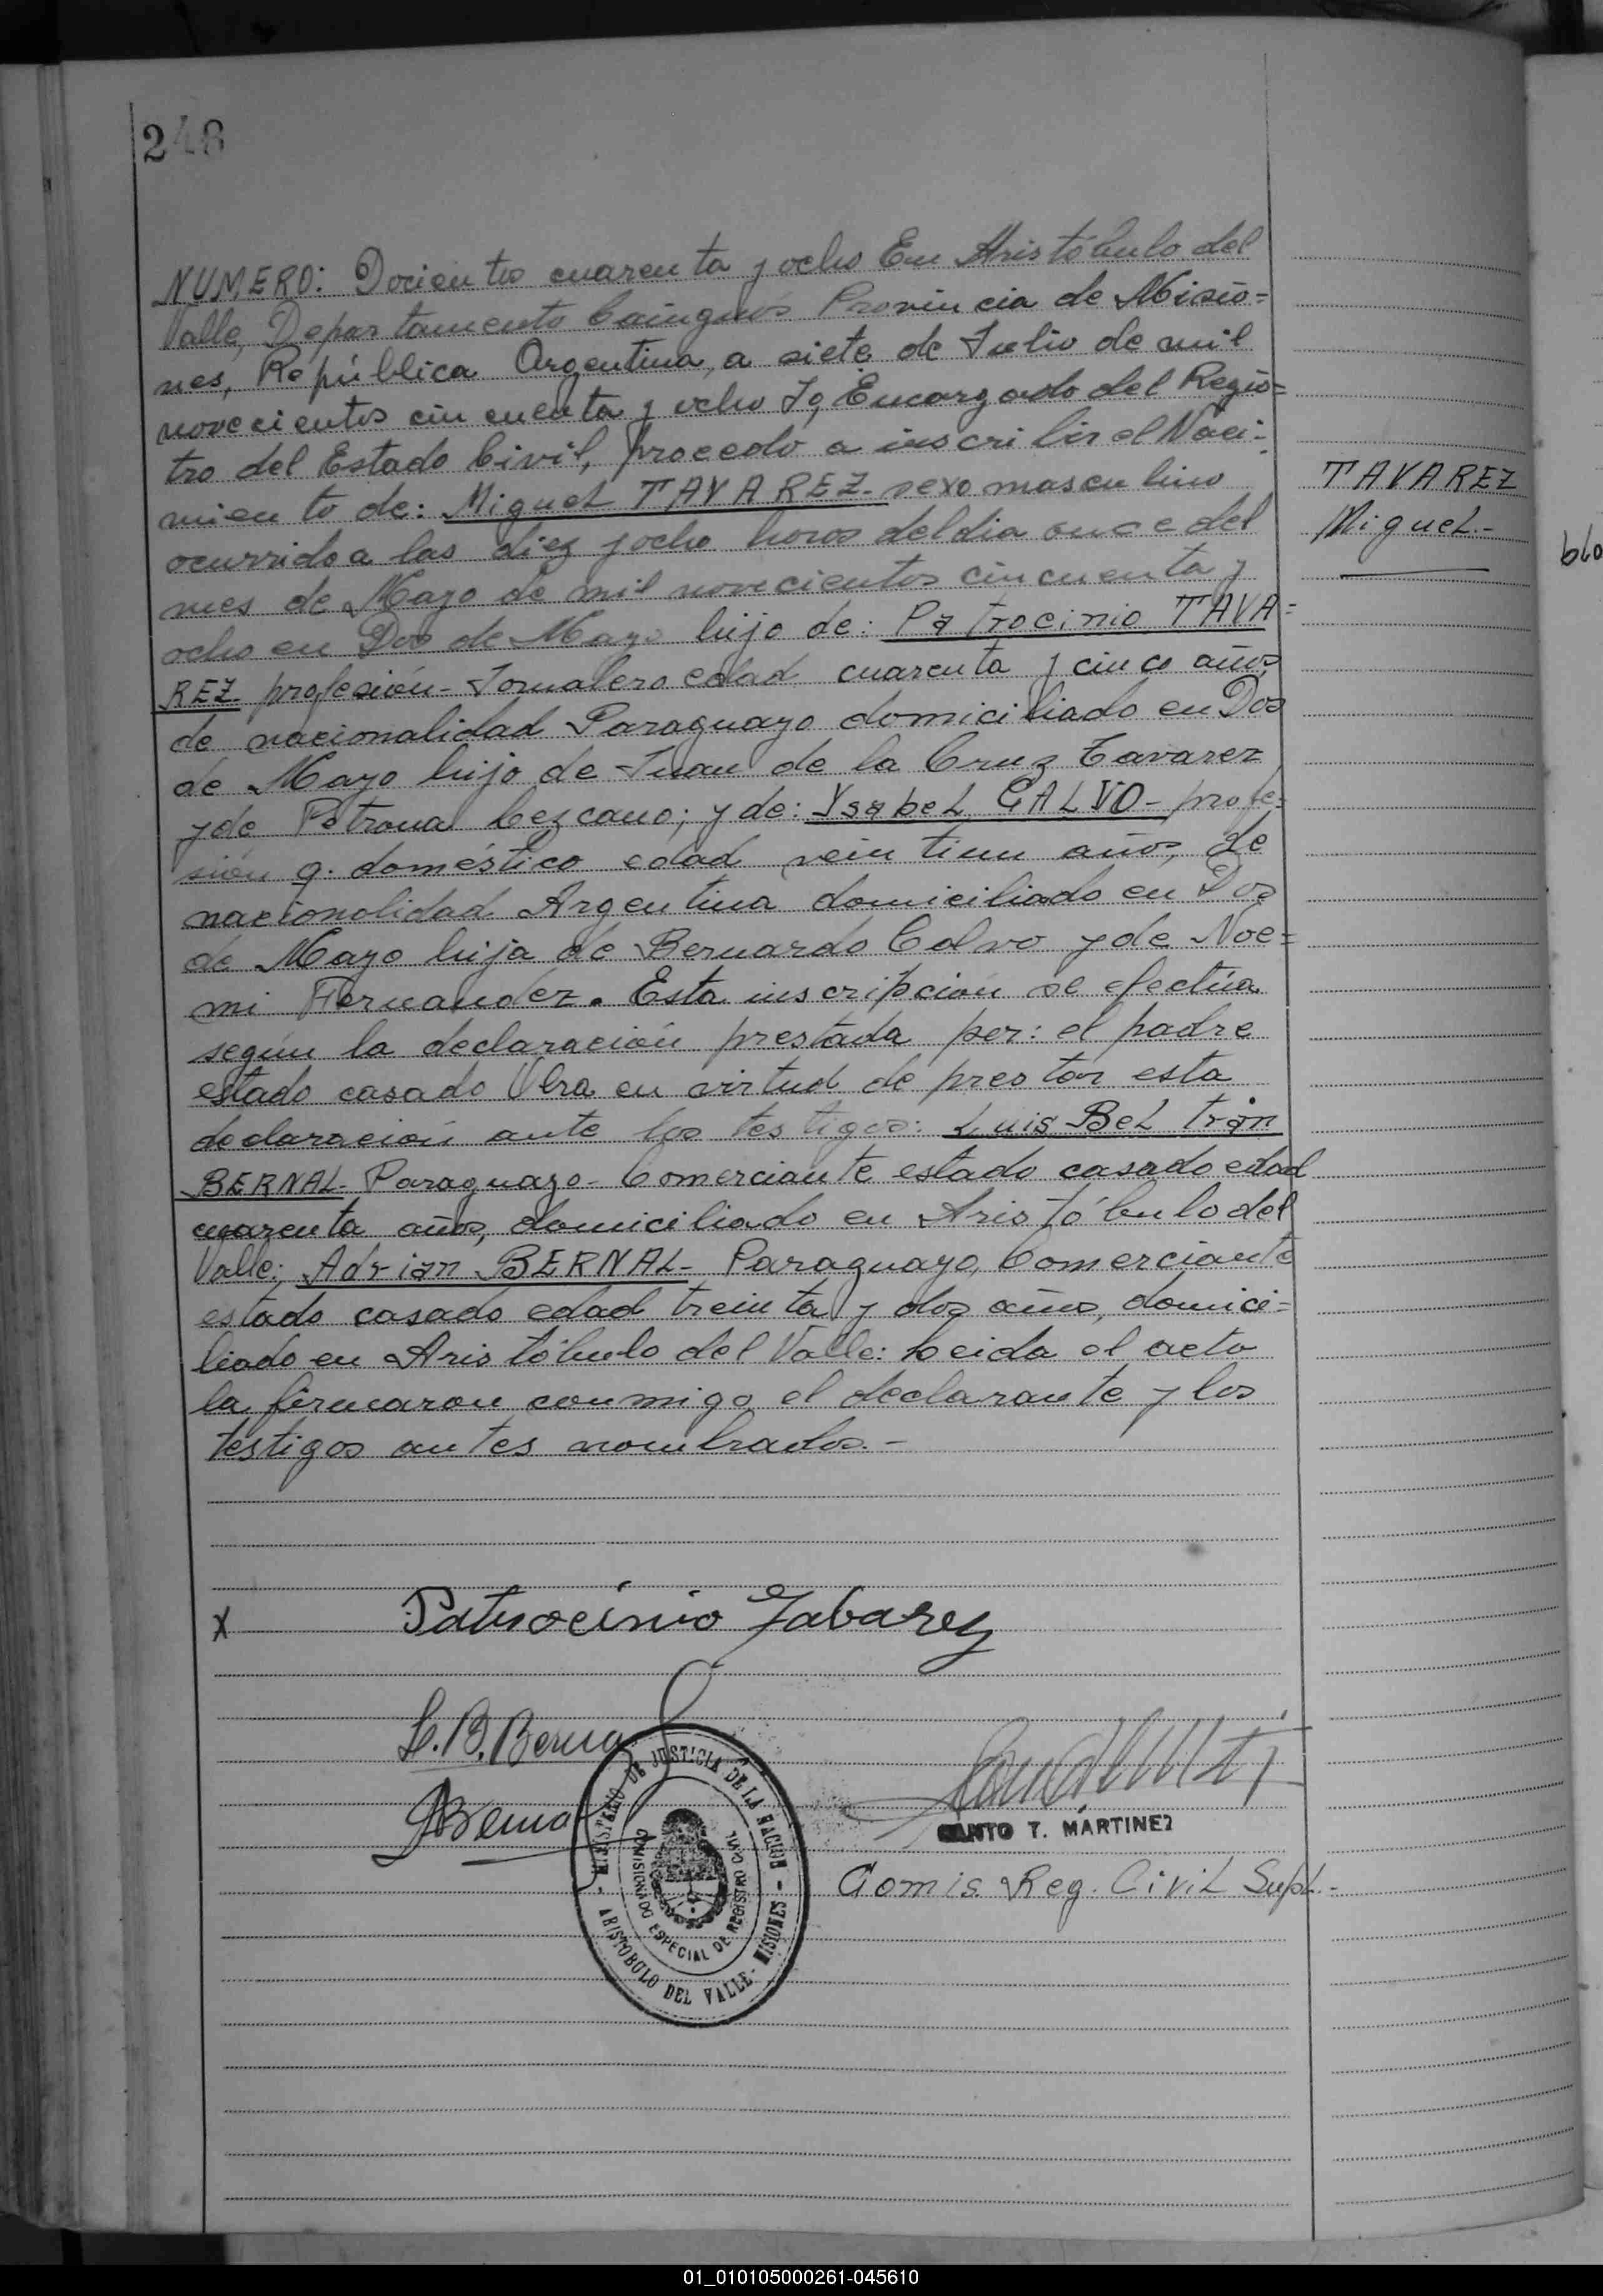 248
NUMERO: Docientos cuarenta y ocho En Aristóbulo del
Valle, Departamento Cainguás Provincia de Misio=
nes, República Argentina, a siete de Julio de mil
novecientos cincuenta y ocho Yo, Encargado del Regis=
tro del Estado Civil, procedo a inscribir el Naci=
miento de: Miguel TAVAREZ- sexo masculino
ocurrido a las diez y ocho horas del dia once del
mes de Mayo de mil novecientos cincuenta y
ocho en Dos de Mayo hijo de: Patrocinio TAVA=
REZ- profesión- Jornalero edad cuarenta y cinco años
de nacionalidad Paraguayo domiciliado en Dos
de Mayo hijo de Juan de la Cruz Tavarez
y de Petrona Lezcano; y de: Ysabel GALVO- profe=
sión q. doméstico edad veintiun años, de
nacionalidad Argentina domiciliado en Dos
de Mayo hija de Bernardo Calvo y de Noe=
mi Fernandez. Esta inscripción se efectúa
según la declaración prestada por: el padre
estado casado Obra en virtud de prestar esta
declaración ante los testigos: Luis Beltrán
BERNAL- Paraguayo- Comerciante estado casado edad
cuarenta años, domiciliado en Aristóbulo del
Valle; Adrian BERNAL- Paraguayo, Comerciante
estado casado edad treinta y dos años, domici=
liado en Aristóbulo del Valle: Leida el acta
la firmaron conmigo el declarante y los
testigos antes nombrados.-
TAVAREZ
Miguel-
blo
X Patrocinio Tabarez
L. B. Bernal
ABernal
MINISTERIO DE JUSTICIA DE LA NACION
COMISIONADO ESPECIAL DE REGISTRO CIVIL
- ARISTOBULO DEL VALLE - MISIONES -
SANTO T. MARTINEZ
Comis. Reg. Civil Supl.-
01_010105000261-045610